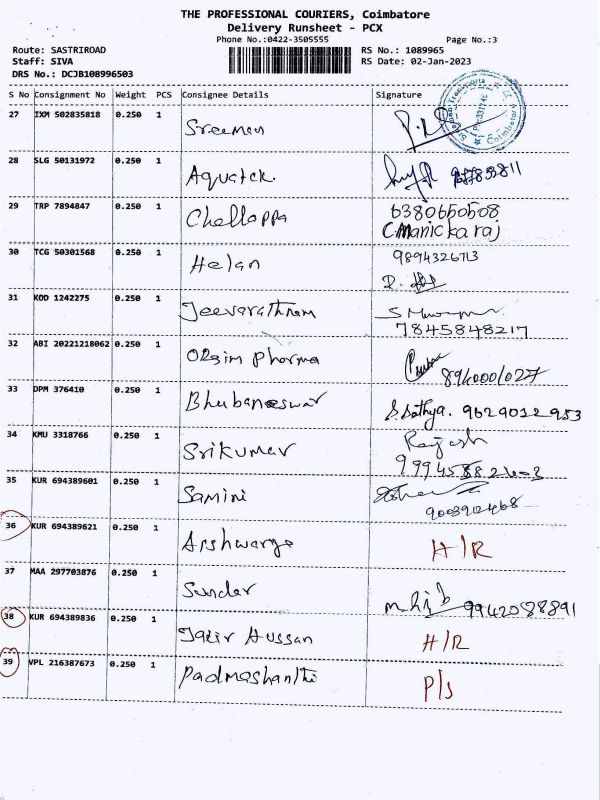 THE PROFESSIONAL COURIERS, Coimbatore
Delivery Runsheet - PCX
Phone No.:0422-3505555
Page No.:3
Route: SASTRIROAD
RS No.: 1089965
Staff: SIVA
RS Date: 02-Jan-2023
DRS No.: DCJB108996503
S No Consignment No Weight PCS Consignee Details Signature
27 IXM 502835818 0.250 1
Sreeman
Coimbatore
28 SLG 50131972 0.250 1
Aquatek
29 TRP 7894847 0.250 1
Chellappa 6380650508
C.Manickaraj
30 TCG 50301568 0.250 1
Helan 9894326713
31 KOD 1242275 0.250 1
Jeevarathnam
7845848217
32 ABI 20221218062 0.250 1
Pharma
33 DPM 376410 0.250 1
Bhubaneswar S.Sathya. 9629012953
34 KMU 3318766 0.250 1
Srikumar Rajesh
35 KUR 694389601 0.250 1
Samini
36 KUR 694389621 0.250 1
H/R
37 MAA 297703876 0.250 1
Sunder
38 KUR 694389836 0.250 1
Hussan H/R
39 VPL 216387673 0.250 1
Padmashanthi P/S